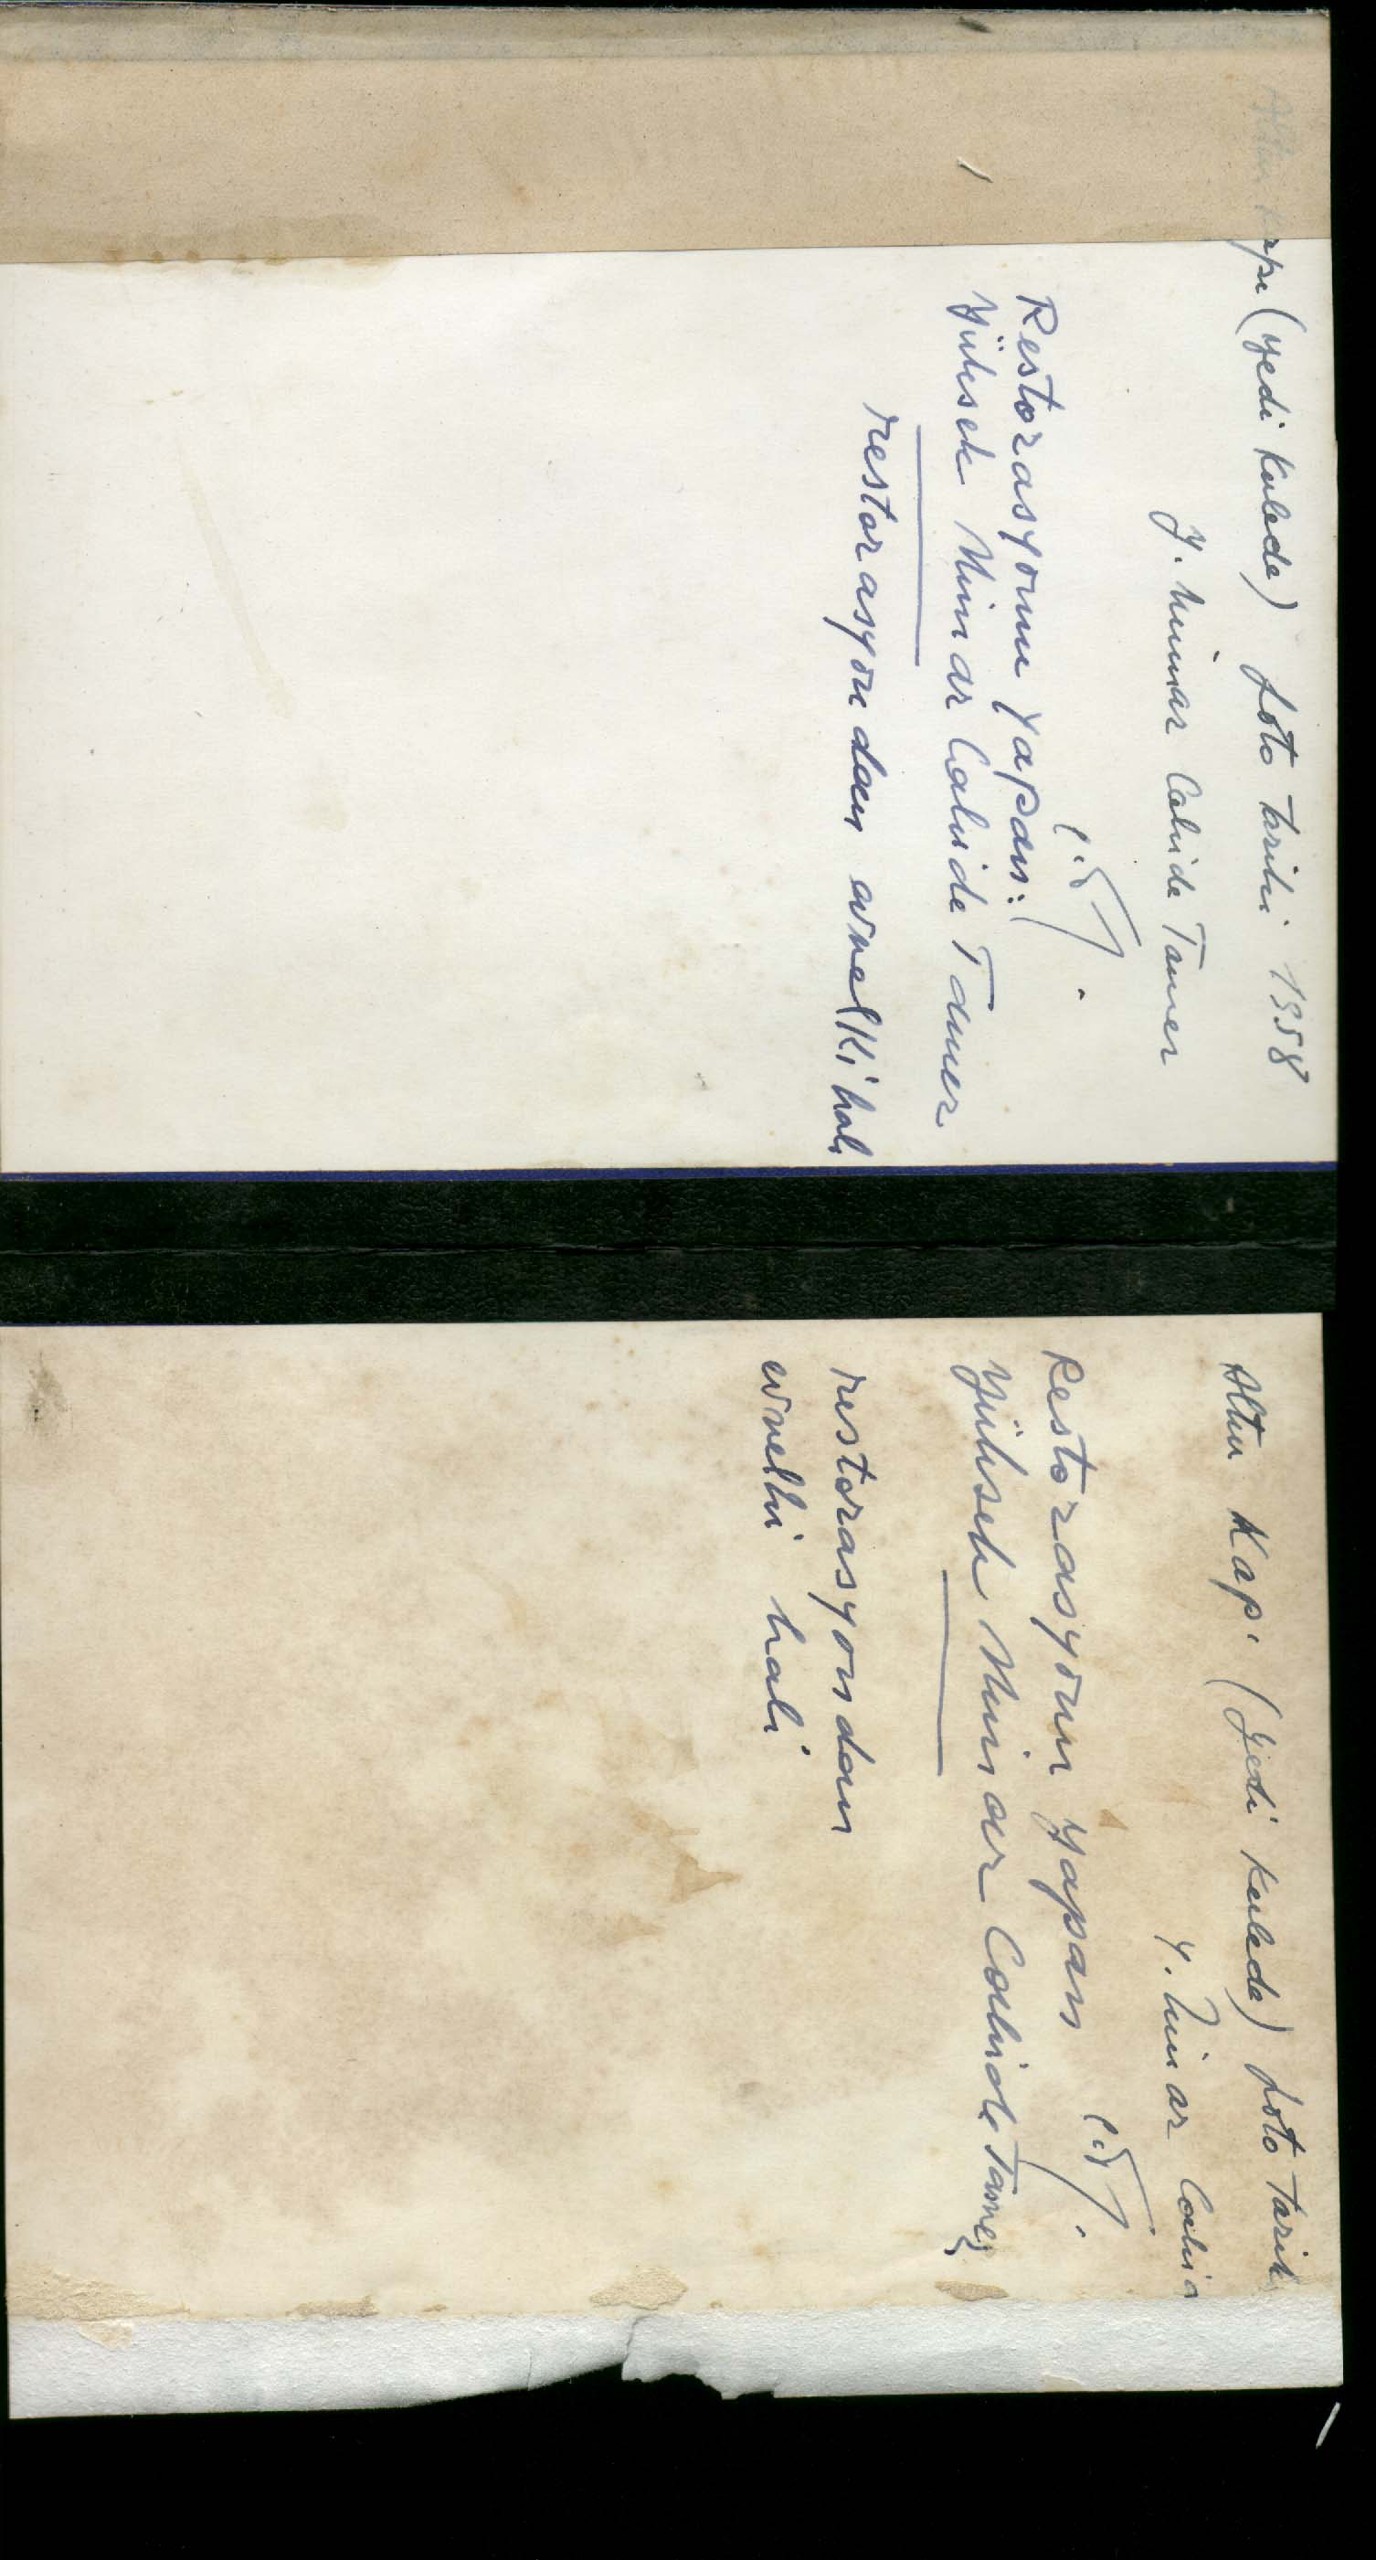 Altın Kapı (Yedi Kulede) foto tarihi 1958
Y. Mimar Cahide Tamer
Restorasyonu yapan:
Yüksek Mimar Cahide Tamer
restorasyondan evvelki hali
Altın Kapı (Yedi Kulede) foto Tarih
Y. Mimar Cahid
Restorasyonu yapan
Yüksek Mimar Cahide Tamer
restorasyondan
evvelki hali